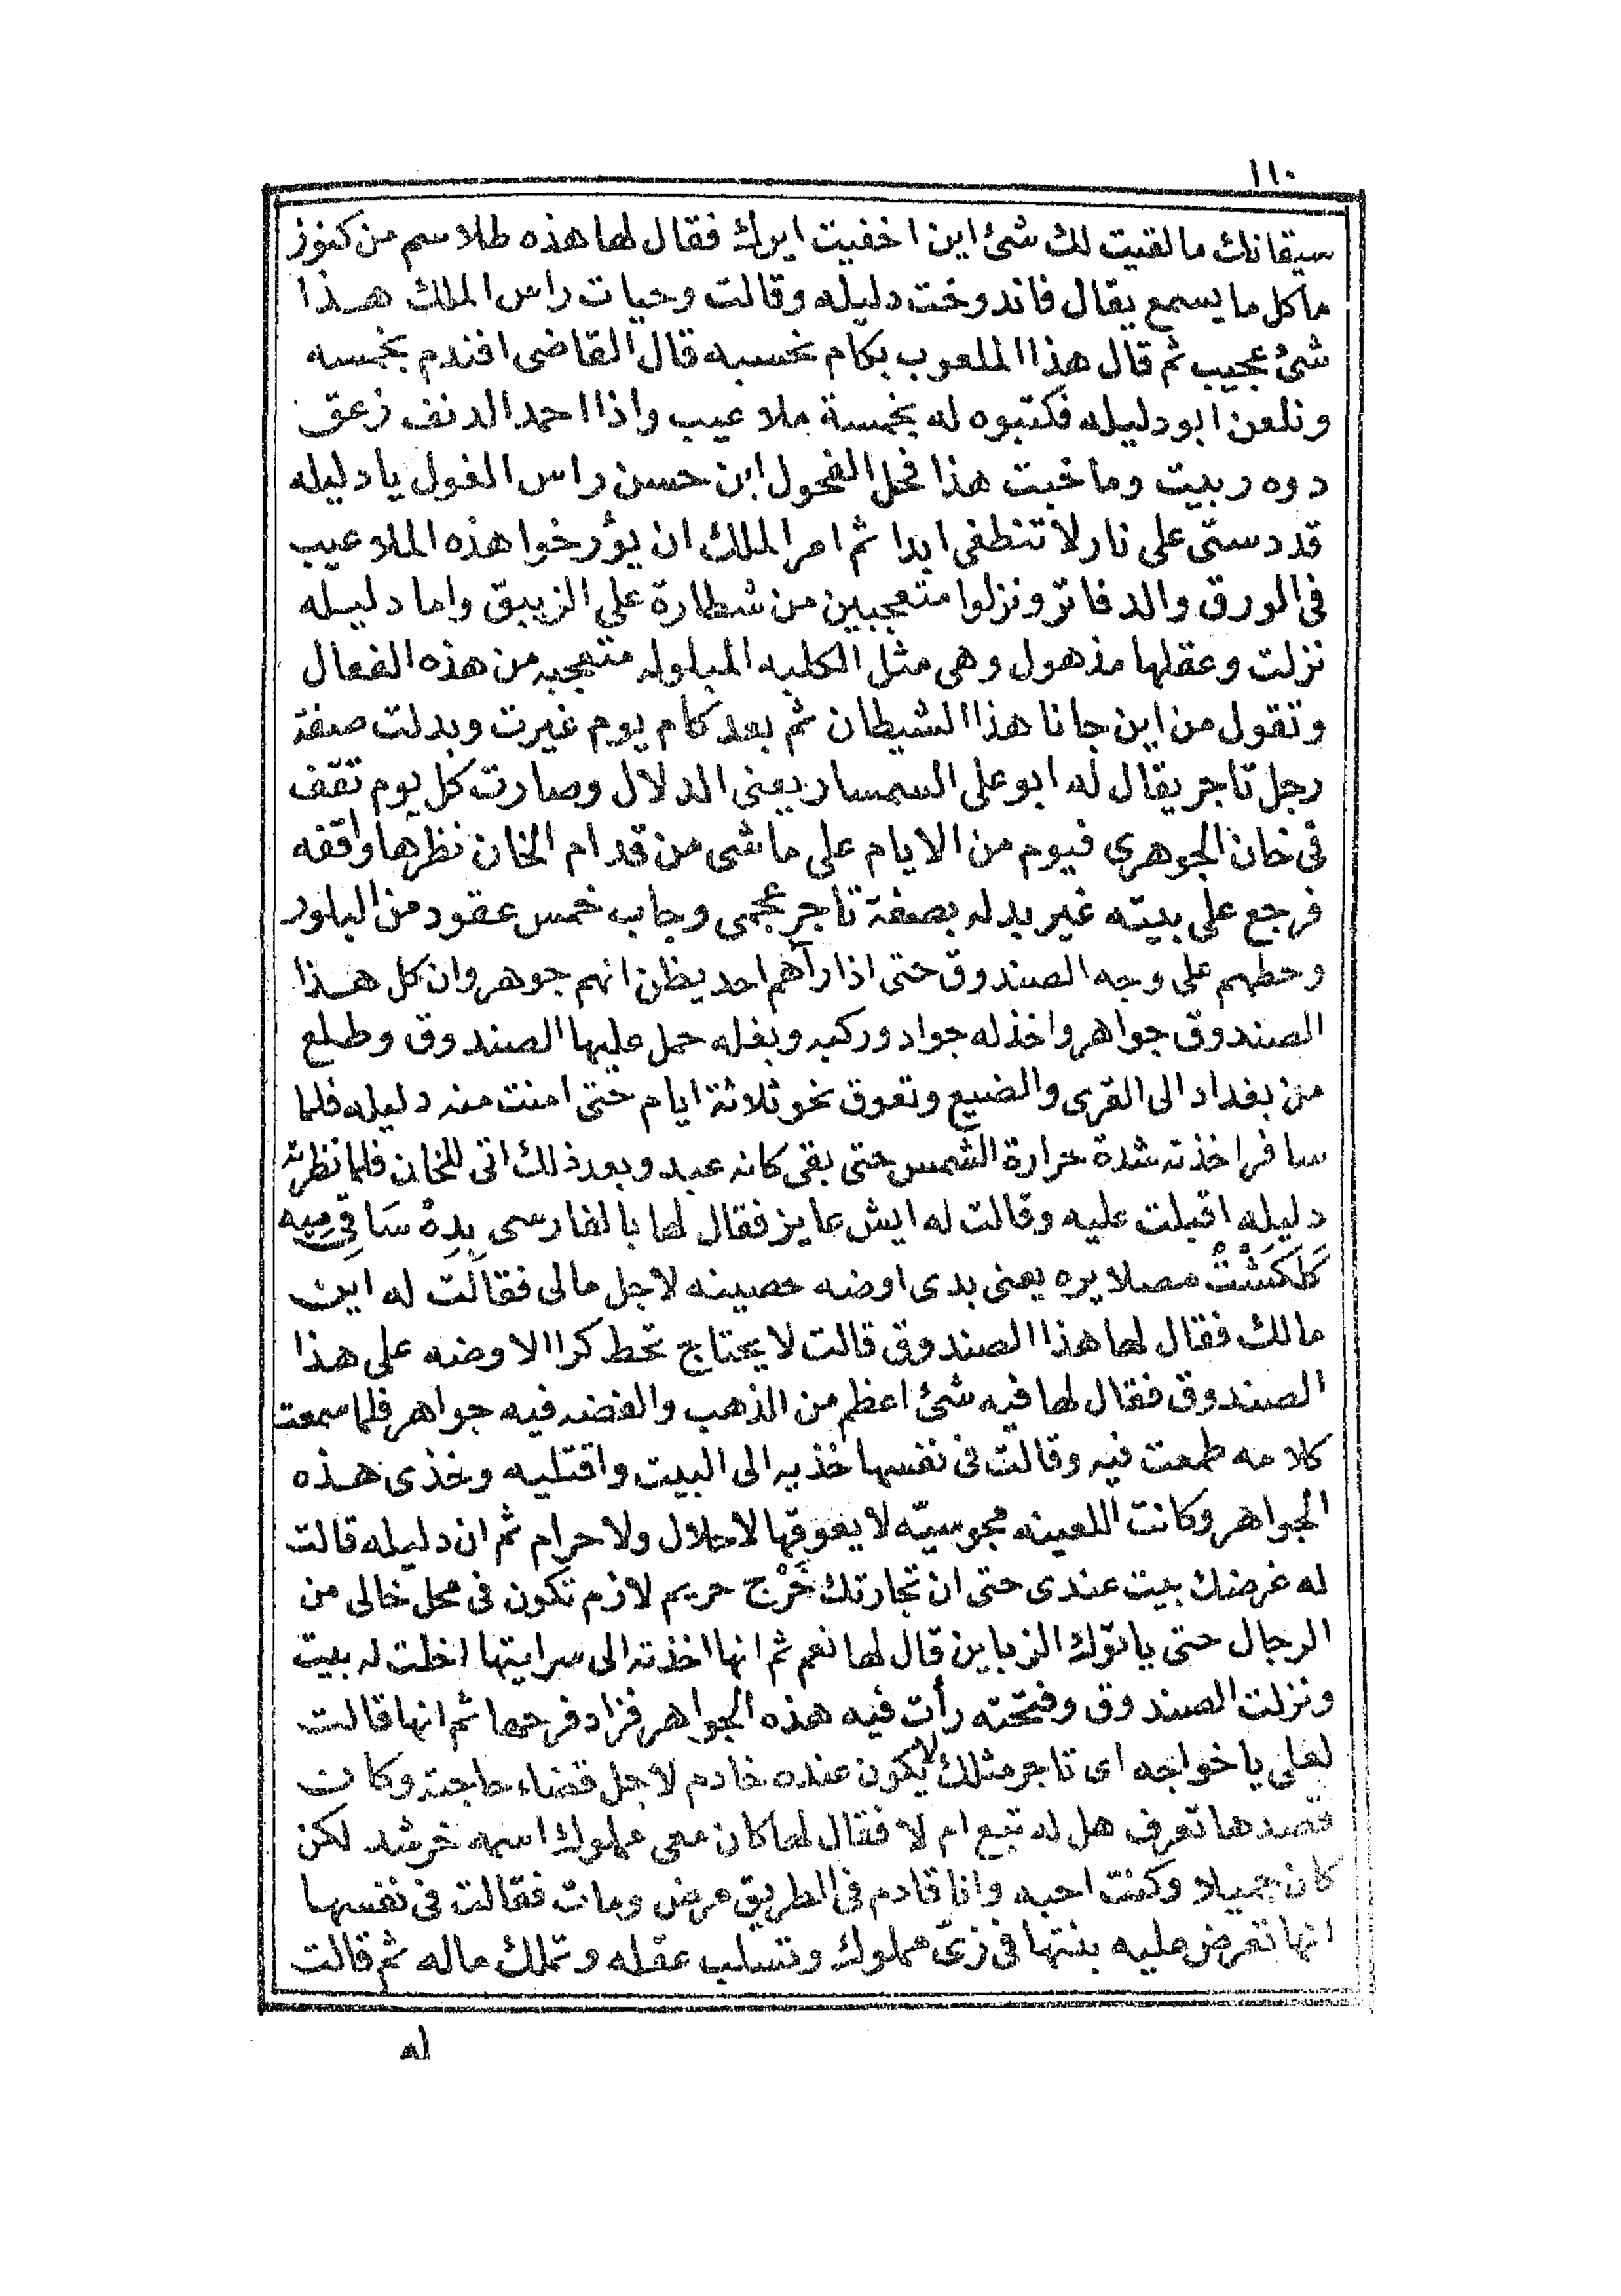 ١١٠
سيقانك مالقيت لك شئ اين اخفيت ايرك فقال لها هذه طلاسم من كنوز
ماكل مايسمع يقال فاندوخت دليله وقالت وحيات راس الملك هذا
شئ عجيب ثم قال هذا الملعوب بكام نحسبه قال القاضى افندم بخمسه
ونلعن ابو دليله فكتبوه له بخمسة ملاعيب واذا احمد الدنف زعق
دوه ربيت وماخبت هذا فحل الفحول ابن حسن راس الغول يا دليله
قد دستى على نار لا تنطفى ابدا ثم امر الملك ان يؤرخوا هذه الملاعيب
فى الورق والدفاتر ونزلوا متعجبين من شطارة على الزيبق واما دليله
نزلت وعقلها مذهول وهى مثل الكلبه المبلوله متعجبه من هذه الفعال
وتقول من اين جانا هذا الشيطان ثم بعد كام يوم غيرت وبدلت صفة
رجل تاجر يقال له ابو على السمسار يعنى الدلال وصارت كل يوم تقف
فى خان الجوهرى فيوم من الايام على ماشى من قدام الخان نظرها واقفه
فرجع على بيته غير بدله بصفة تاجر عجمى وجاب خمس عقود من البلور
وحطهم على وجه الصندوق حتى اذا رآهم احد يظن انهم جوهر وان كل هذا
الصندوق جواهر واخذ له جواد وركبه وبغله حمل عليها الصندوق وطلع
من بغداد الى القرى والضيع وتعوق نحو ثلاثة ايام حتى امنت منه دليله فلما
سافر اخذته شدة حرارة الشمس حتى بقى كانه عبد وبعد ذلك اتى للخان فلما نظرته
دليله اقبلت عليه وقالت له ايش عايز فقال لها بالفارسى بِدِهْ سَاقِى مِيه
كَلَكَشْتُ مصلا يره يعنى بدى اوضه حصينه لاجل مالى فقالت له اين
مالك فقال لها هذا الصندوق قالت لا يحتاج تحط كرا الاوضه على هذا
الصندوق فقال لها فيه شئ اعظم من الذهب والفضه فيه جواهر فلما سمعت
كلامه طمعت فيه وقالت فى نفسها خذيه الى البيت واقتليه وخذى هذه
الجواهر وكانت اللعينه مجوسيّه لا يعوقها لا حلال ولا حرام ثم ان دليله قالت
له غرضك بيت عندى حتى ان تجارتك خَرْج حريم لازم تكون فى محل خالى من
الرجال حتى ياتوك الزباين قال لها نعم ثم انها اخذته الى سرايتها اخلت له بيت
ونزلت الصندوق وفتحته رأت فيه هذه الجواهر فزاد فرحها ثم انها قالت
لعلى يا خواجه اى تاجر مثلك لا يكون عنده خادم لاجل قضاء حاجته وكانت
قصدها تعرف هل له تبع ام لا فقال لها كان معى مملوك اسمه خرشد لكن
كان جميلا وكنت احبه وانا قادم فى الطريق مرض ومات فقالت فى نفسها
انها تعرض عليه بنتها فى زىّ مملوك وتسلب عقله وتملك ماله ثم قالت
له